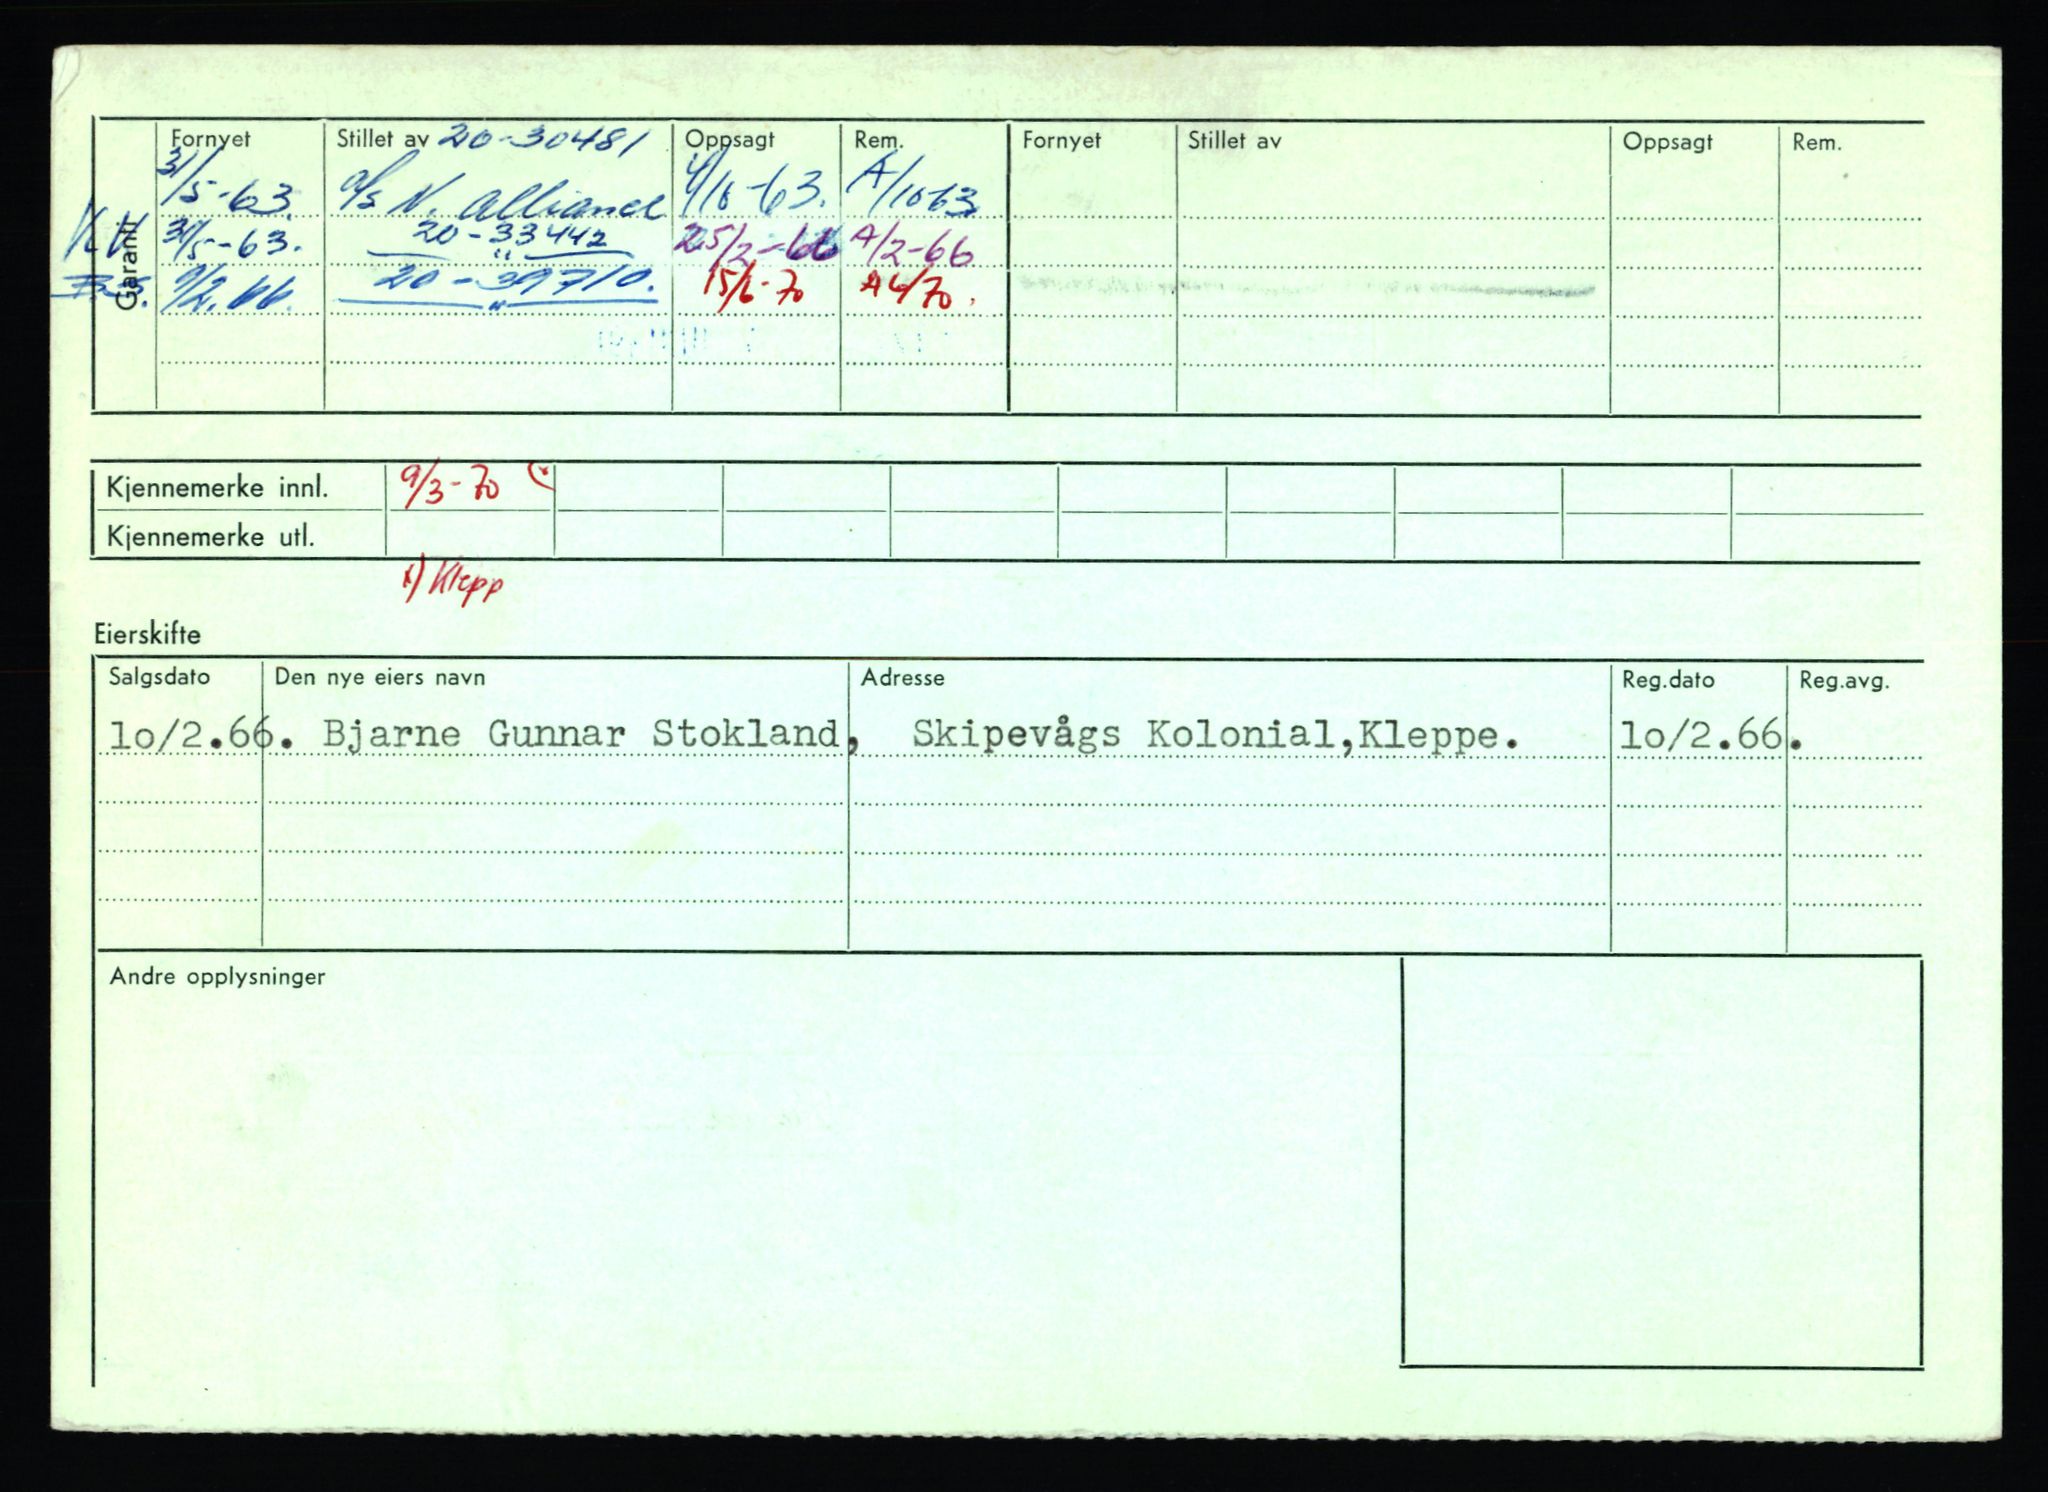 Fornyet Stillet av 20-30481 Oppsagt Rem. Fornyet Stillet av Oppsagt Rem.
31/5-63. A/S N. Alliance 4/10-63. A/10-63
Garanti
31/5-63. 20-33442 25/2-66 A/2-66
9/2.66. 20-39710. 15/6-70 A6/70.
Kjennemerke innl. 9/3-70 x)
Kjennemerke utl.
x) Klepp
Eierskifte
Salgsdato Den nye eiers navn Adresse Reg.dato Reg.avg.
lo/2.66. Bjarne Gunnar Stokland, Skipevågs Kolonial,Kleppe. lo/2.66.
Andre opplysninger